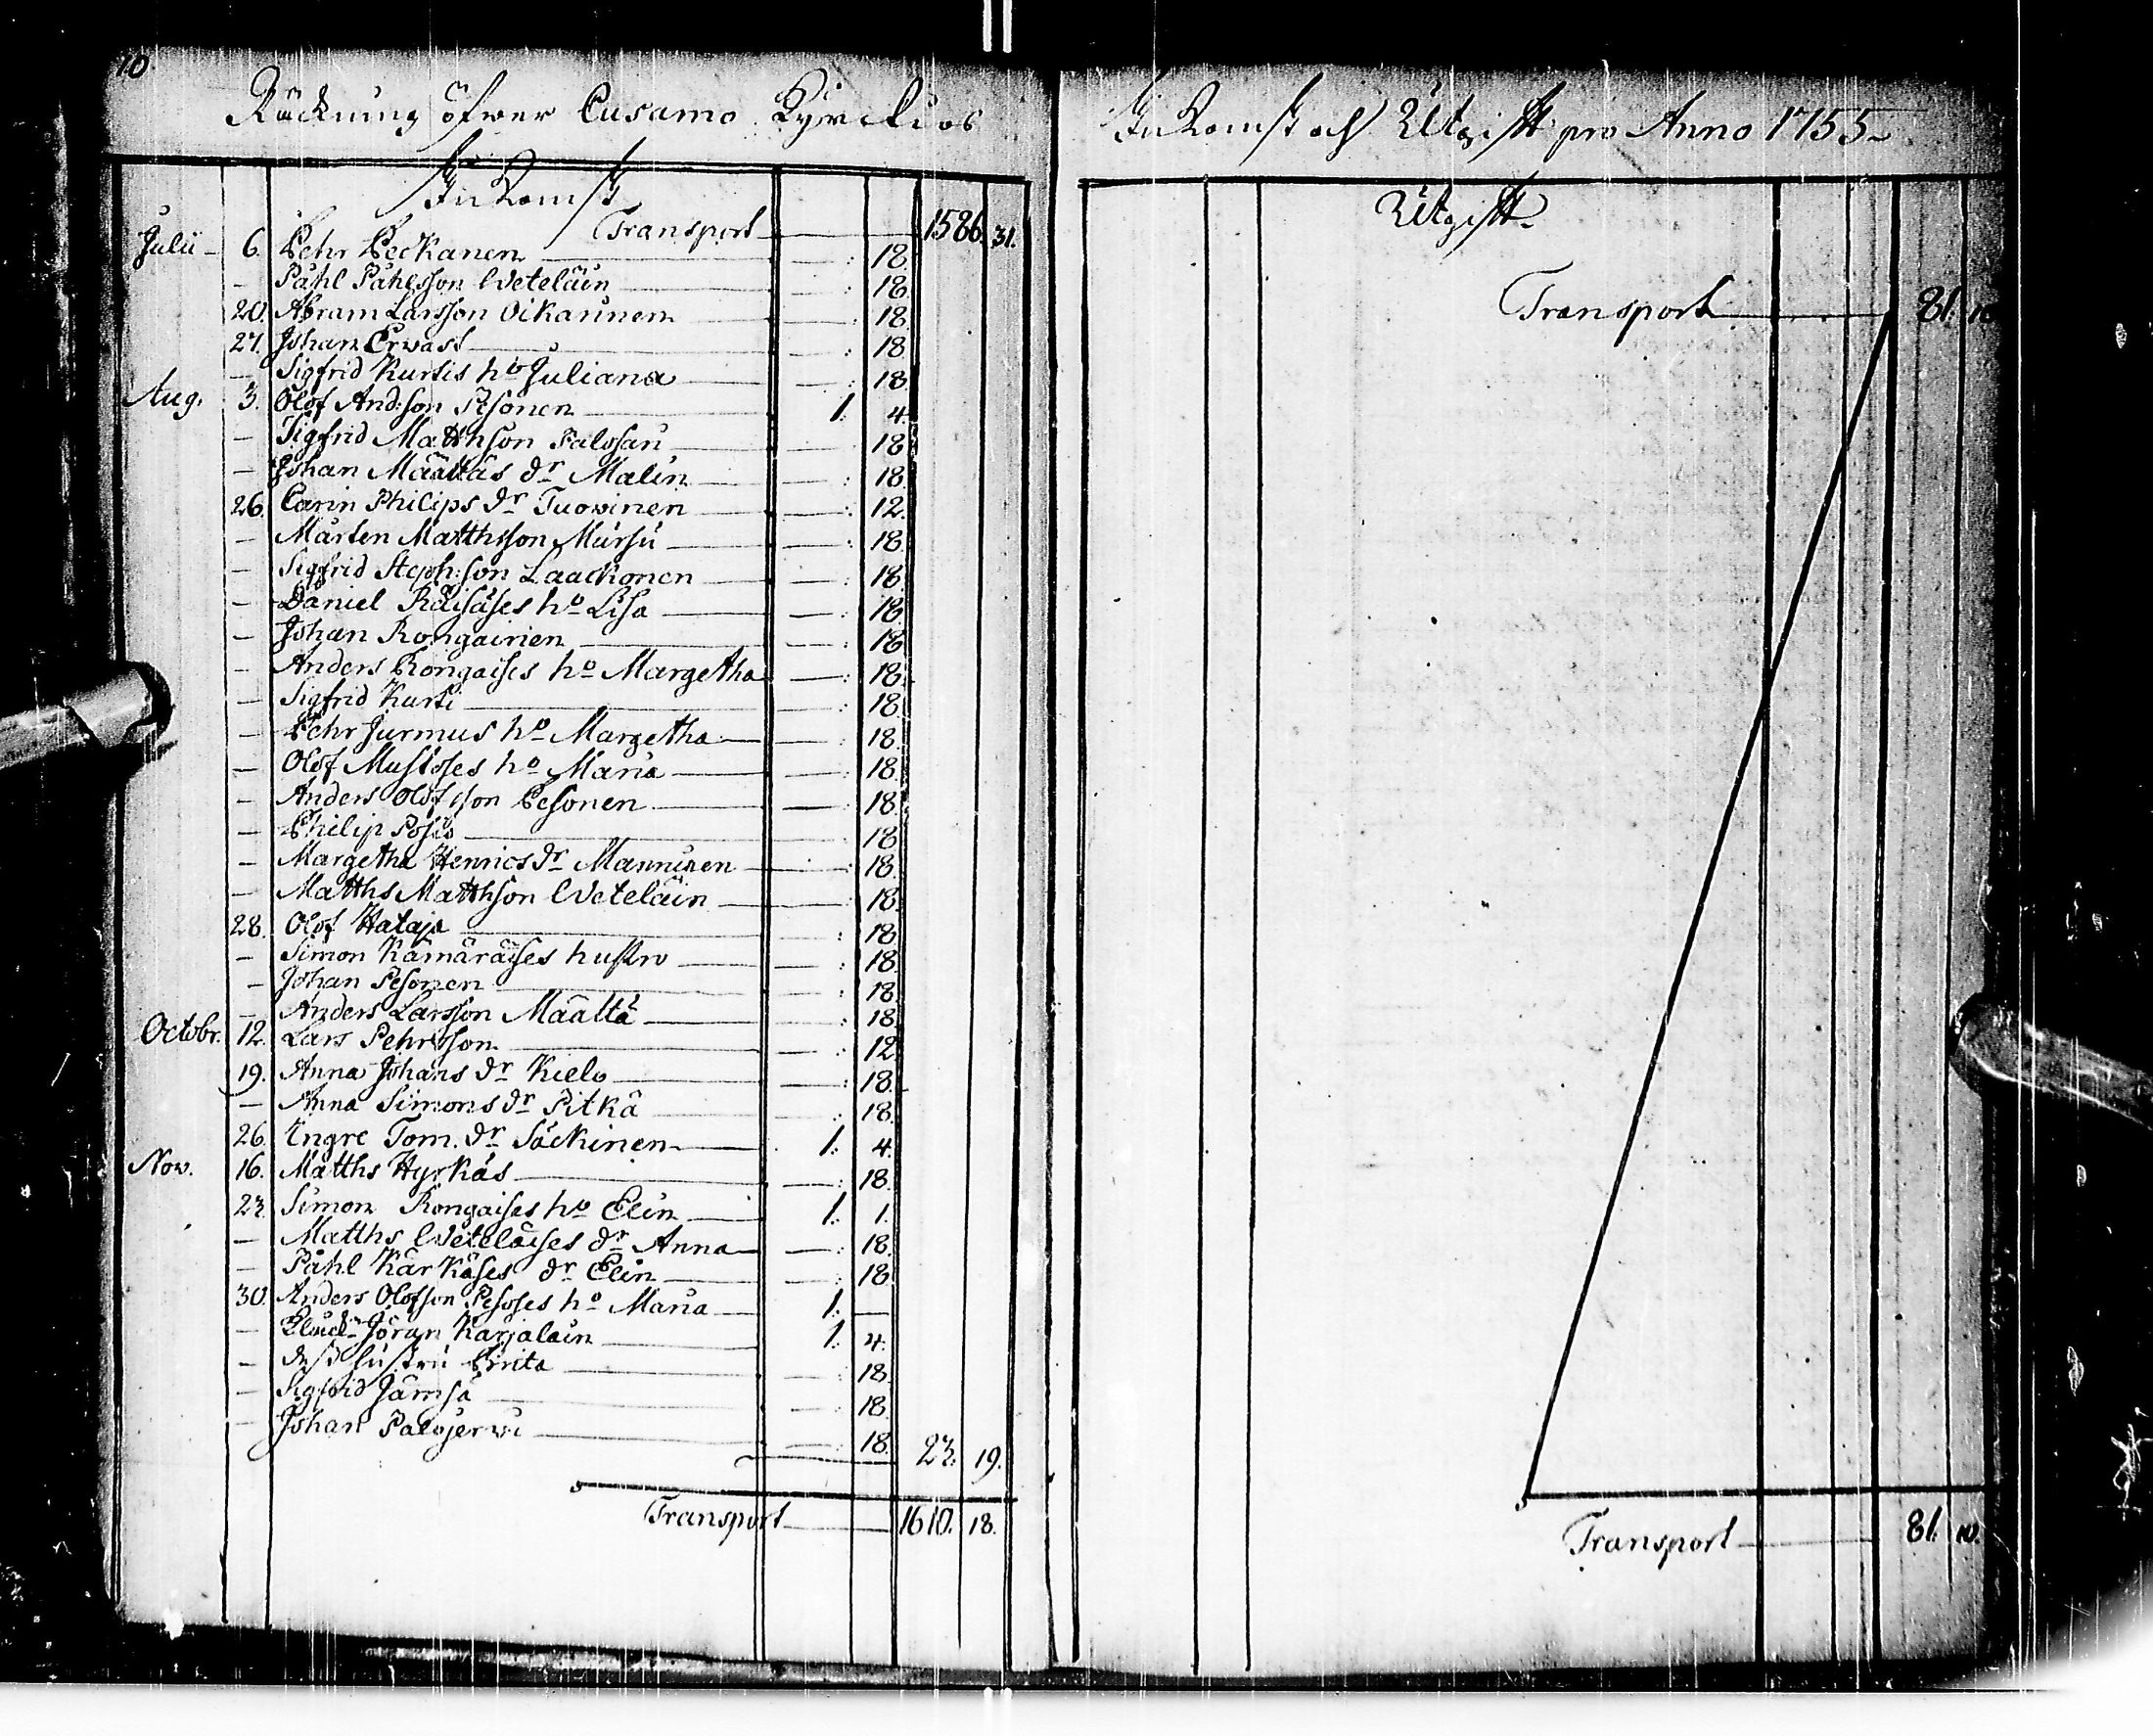 10.
Räckning öfwer Cusamo Kyrckios
Inkomst
Transport 1586. 31.
Julii 6. Pehr Peckanen 18.
— Påhl Påhlsson Weteläin 18.
20. Abram Larsson Oikarinen 18.
27. Johan Ervast 18.
— Sigfrid Kurtis ho Juliana 18.
Aug. 3. Olof And:son Pesonen 1. 4.
— Sigfrid Matthson Palosari 18.
— Johan Määttäs dr Malin 18.
26. Carin Philips dr Tuovinen 12.
— Mårten Matthsson Mursu 18.
— Sigfrid Steph:son Laackonen 18.
— Daniel Räisäses ho Lisa 18.
— Johan Rongainen 18.
— Anders Rongaises ho Margetha 18.
— Sigfrid Kurti 18.
— Pehr Jurmus ho Margetha 18.
— Olof Mustoses ho Maria 18.
— Anders Olofsson Pesonen 18.
— Philip Posio 18.
— Margetha Henrics dr Manninen 18.
— Matths Matthson Weteläin 18.
28. Olof Hataja 18.
— Simon Kämäräises hustro 18.
— Johan Pesonen 18.
— Anders Larsson Määttä 18.
Octobr. 12. Lars Pehrsson 12.
19. Anna Johans dr Kielo 18.
— Anna Simons dr Pitkä 18.
26. Ingre Tom. dr Säckinen 1. 4.
Nov. 16. Matths Hyrkäs 18.
23. Simon Rongaises ho Elin 1. 1.
— Matths Weteläises dr Anna 18.
— Påhl Kärkäses dr Elin 18.
30. Anders Olofson Pesoses ho Maria 1. —
— Jöran Karjalain 1. 4.
— hustru Brita 18.
— Sigfrid Jämsä 18.
— Johan Palojerwi 18.
23. 19.
Transport 1610. 18.
Inkomst och Utgifft pro Anno 1755
Utgifft
Transport 81. 10
Transport 81. 10.